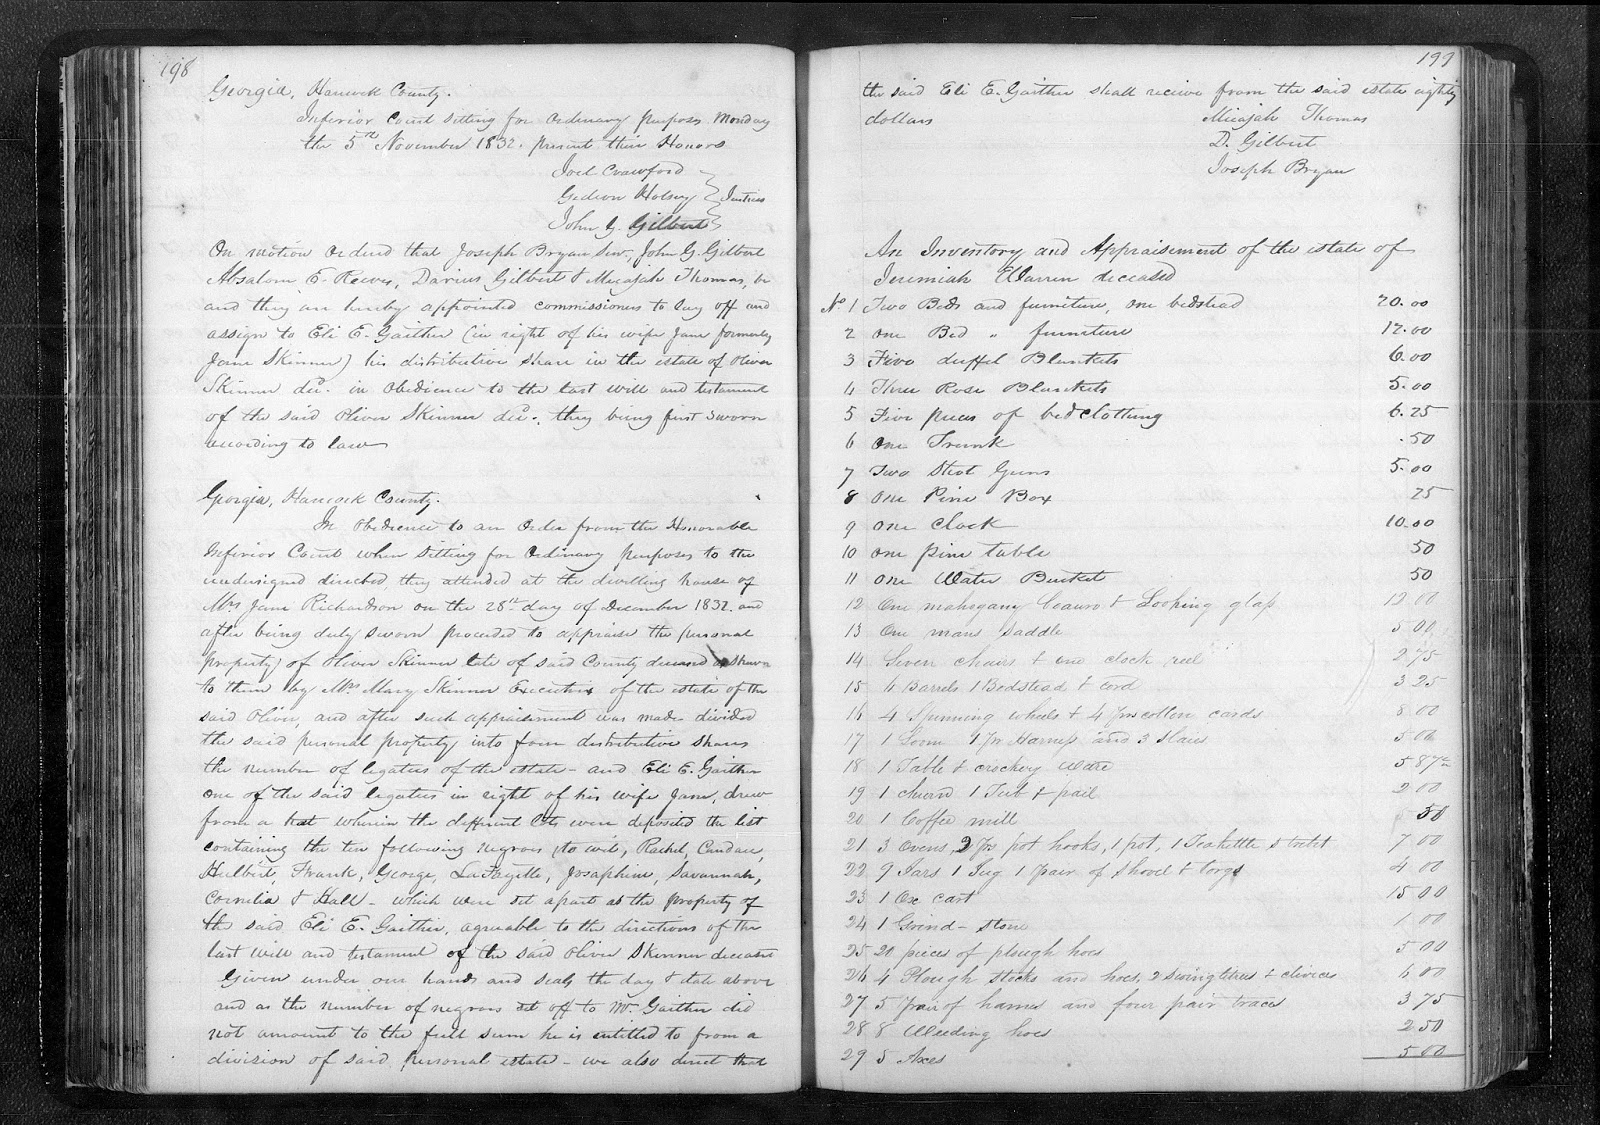 198
Georgia, Hancock County.
Inferior Court sitting for Ordinary purposes Monday
the 5th November 1832. present their Honors
Joel Crawford
Gideon Holsey Justices
John G. Gilbert
On motion Ordered that Joseph Bryan Senr, John G. Gilbert
Absalom E. Reeves, Darius Gilbert & Micajah Thomas, be
and they are hereby appointed commissioners to lay off and
assign to Eli E. Gaither (in right of his wife Jane formerly
Jane Skinner) his distributive share in the estate of Oliver
Skinner decd. in Obedience to the last will and testament
of the said Oliver Skinner decd. they being first sworn
according to law
Georgia, Hancock County.
In Obedience to an Order from the Honorable
Inferior Court when sitting for Ordinary purposes to the
undersigned directed, they attended at the dwelling house of
Mrs Jane Richardson on the 28th day of December 1832. and
after being duly sworn proceeded to appraise the personal
property of Oliver Skinner late of said County deceased as shewn
to them by Mrs Mary Skinner Executrix of the estate of the
said Oliver, and after such appraisement was made divided
the said personal property into four distributive shares
the number of legatees of the estate - and Eli E. Gaither
one of the said legatees in right of his wife Jane, drew
from a hat wherein the different lots were deposited the list
containing the ten following negroes, to wit, Rachel, Candace,
Hulbert, Frank, George, LaFayette, Josephine, Savannah,
Cornelia & Hall - which were set apart as the property of
the said Eli E. Gaither, agreeable to the directions of the
last will and testament of the said Oliver Skinner deceased
Given under our hands and seals the day & date above
and as the number of negroes set off to Mr. Gaither did
not amount to the full sum he is entitled to from a
division of said personal estate - we also direct that
199
the said Eli E. Gaither shall receive from the said estate eighty
dollars Micajah Thomas
D. Gilbert
Joseph Bryan
An Inventory and Appraisement of the estate of
Jeremiah Warren deceased
No. 1 Two Beds and furniture, one bedstead 20.00
2 One Bed " furniture 12.00
3 Five duffel Blankets 6.00
4 Three Rose Blankets 5.00
5 Five pieces of bedclothing 6.25
6 One Trunk .50
7 Two Shot Guns 5.00
8 One Pine Box 25
9 One Clock 10.00
10 One pine table 50
11 One Water Bucket 50
12 One mahogany beauro & Looking glass 12 00
13 One mans saddle 5 00
14 Seven chairs & one clock reel 2 75
15 4 Barrels 1 Bedstead & cord 3 25
16 4 Spinning wheels & 4 prs cotton cards 8 00
17 1 Loom 1 pr Harness and 3 slaies 5 00
18 1 Table & crockery ware 5 87½
19 1 churn 1 Tub & pail 2 00
20 1 Coffee mill 50
21 3 Ovens, 2 prs pot hooks, 1 pot, 1 Teakettle & trivit 7 00
22 9 Jars 1 Jug 1 pair of shovel & tongs 4 00
23 1 Ox cart 15 00
24 1 Grind-stone 1 00
25 20 pieces of plough hoes 5 00
26 4 Plough stocks and hoes, 2 swingletrees & clivices 6 00
27 5 pair of hames and four pair traces 3 75
28 8 Weeding hoes 2 50
29 5 Axes 5 00